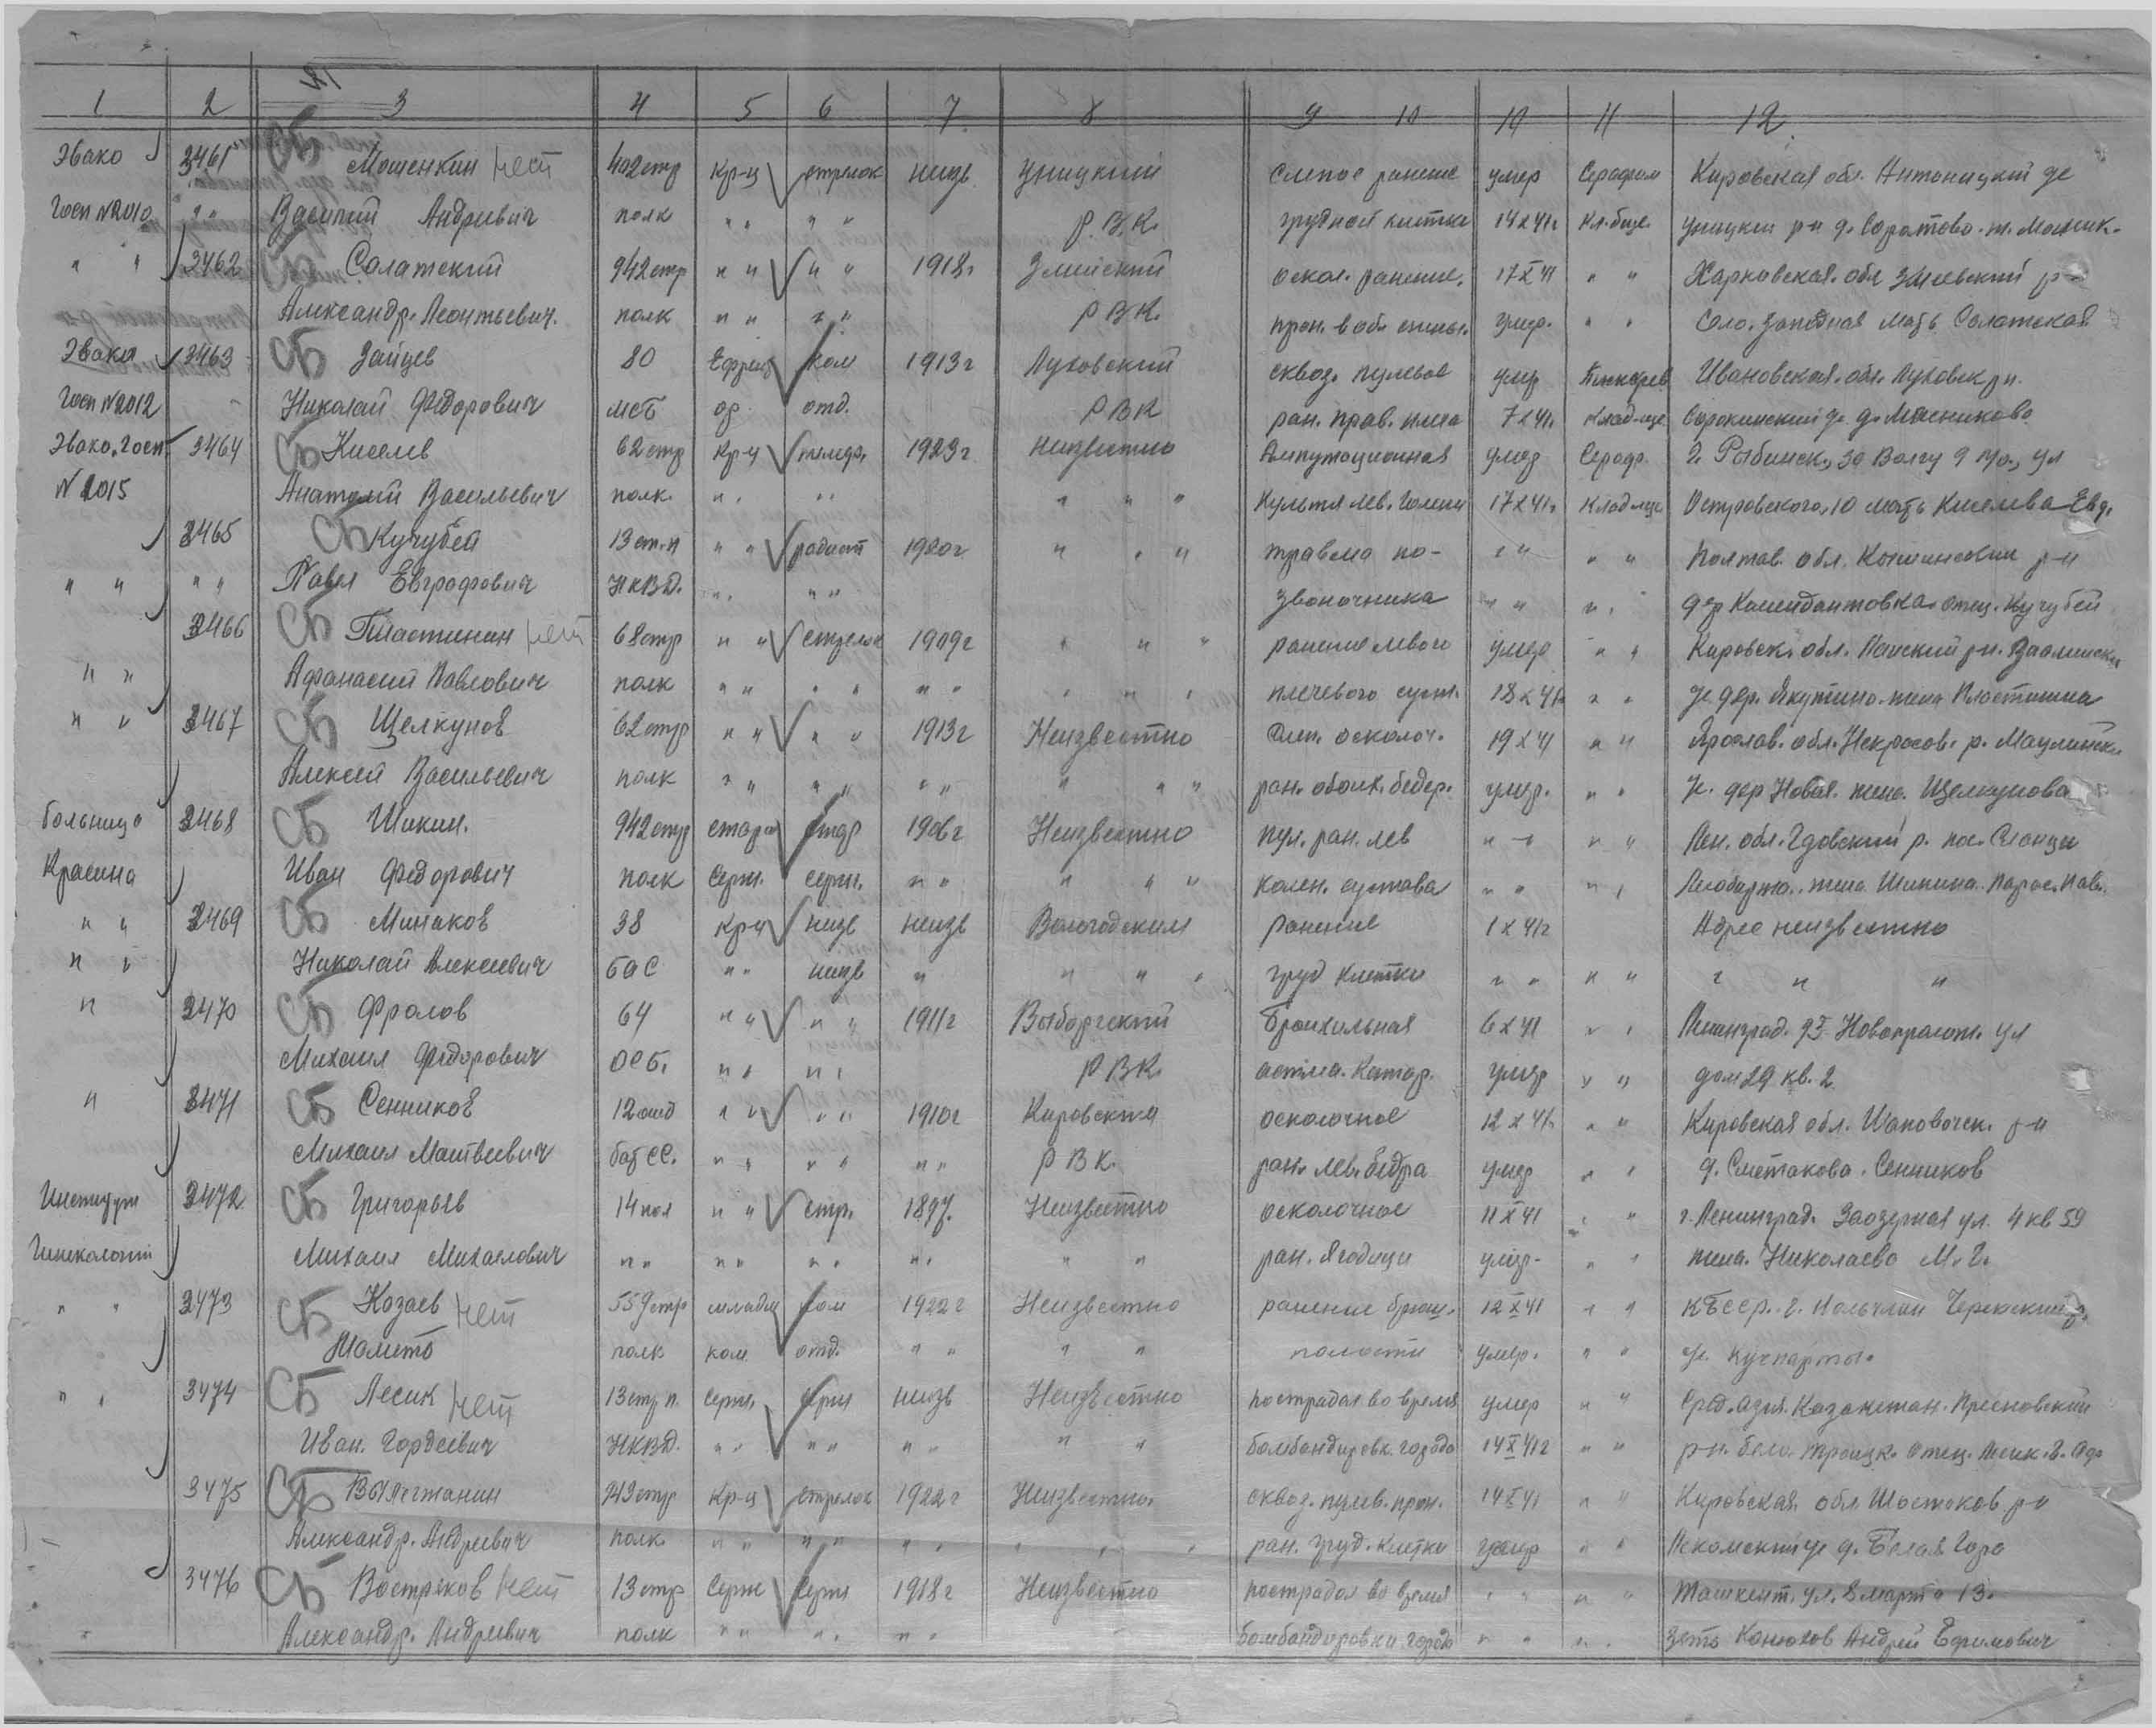 21
1 2 3 4 5 6 7 8 9 10 10 11 12
Эвако 3461 СБ Мошенкин нет 402 стр Кр-ц стрелок неизв Уницкий слепое ранение умер Серафим Кировская обл.
Госп N2010 " " Василий Андреевич полк " " " " Р.В.К. грудной клетки 14 X 41г Кл-бище
" " 3462 СБ Солатский 942 стр " " " " 1918г Змиевский оскол. ранение. 17 X 41 " " Харковская обл Змиевский р-
Александр Леонтьевич. полк " " " " РВК. прон. в обл. умер. " " мать Солатская
Эвако 3463 СБ Зайцев 80 Ефрейт ком 1913г Луховский сквоз. пулевое умер Ивановская обл. Луховск рн.
Госп N2012 Николай Федорович МСБ ор отд. РВК ран. прав. плеча 7 X 41г. клад-ще Сорокинский д. Мясниково
Эвако. Госп. 3464 СБ Киселев 62 стр Кр-ц 1923г неизвестно Ампутационная умер Сераф. г. Рыбинск, за Волгу 9 ул
N 2015 Анатолий Васильевич полк. " " " " " " " Культя лев. голени 17 X 41г. Клад-ще Островского, 10 мать Киселева Евд.
3465 СБ Кучубей 13 ст.п " " радист 1920г " " " травма по- " " " " Полтав. обл. р-н
" " " " Павел Евграфович НКВД. " " " " звоночника " " " " дер Комендантовка отец. Кучубей
3466 СБ Пластинин нет 68 стр " " стрелок 1909г " " " ранение левого умер " " Кировск. обл. рн.
" " Афанасий Павлович полк " " " " " " " " " плечевого суст. 18 X 41г " " дер. Якутино. жена Пластинина
" " 3467 СБ Щелкунов 62 стр " " " " 1913г Неизвестно Слеп. осколоч. 19 X 41 " " Ярослав. обл. Некрасов. р.
Алексей Васильевич полк " " " " " " " " " ран. обоих. бедер. умер. " " дер Новая. жена. Щелкунова
Больница 3468 СБ Шикин. 942 стр старш стар 1906г Неизвестно пул. ран. лев " " " " Лен. обл. Гдовский р. пос. Сланцы
Красина Иван Федорович полк Серж. серж. " " " " " колен. сустава " " " " жена Шикина Парас. Пав.
" " 3469 СБ Минаков 38 Кр-ц неизв неизв Вологодским ранение 1 X 41г Адрес неизвестно
" " Николай Алексеевич БАС " " неизв " " " " груд клетки " " " " " " "
" 3470 СБ Фролов 64 " " " " 1911г Выборгский Бронхильная 6 X 41 " " Ленинград. ул
Михаил Федорович ОСБ. " " " " РВК. астма. Катар. умер " " дом 29 кв. 2
" 3471 СБ Сенников 12 " " " " 1910г Кировским осколочное 12 X 41г. " " Кировская обл. р-н
Михаил Матвеевич бат СС. " " " " " " РВК. ран. лев. бедра умер " " д. Сметаково. Сенников
Институт 3472 СБ Григорьев 14 пол " " стр. 1897. Неизвестно осколочное 11 X 41 " " г. Ленинград. Заозерная ул. 4 кв 59
Гинекологии Михаил Михаелович " " " " " " " " " " ран. ягодицы умер. " " жена. Николаева М. Г.
" " 3473 СБ Козаев нет 559 стр младш ком 1922г Неизвестно ранение брюш. 12 X 41 " " КБССР. г. Нальчик
полк ком отд. " " " " полости умер. " "
" " 3474 СБ Лесик нет 13 стр п. Серж. серж неизв Неизвестно пострадал во время умер " " Сред. азия. Казакстан. Пресновский
Иван. Гордеевич НКВД. " " " " " " " " бомбандировк. города 14 X 41г " " р-н. отец. Лесик. Г.
3475 СБ Вылегжанин 943 стр Кр-ц стрелок 1922г Неизвестно. сквоз. пулев. прон. 14 X 41 " " Кировская. обл р-н
Александр. Андреевич полк " " " " " " " " " ран. груд. клетки умер " " д. Белая Гора
3476 СБ Востряков нет 13 стр Серж Серж 1918г Неизвестно пострадал во время " " " " Ташкент. ул. 8 марта 13.
Александр. Андреевич полк " " " " " " " бомбандировки города " " " " зять Конюхов Андрей Ефимович